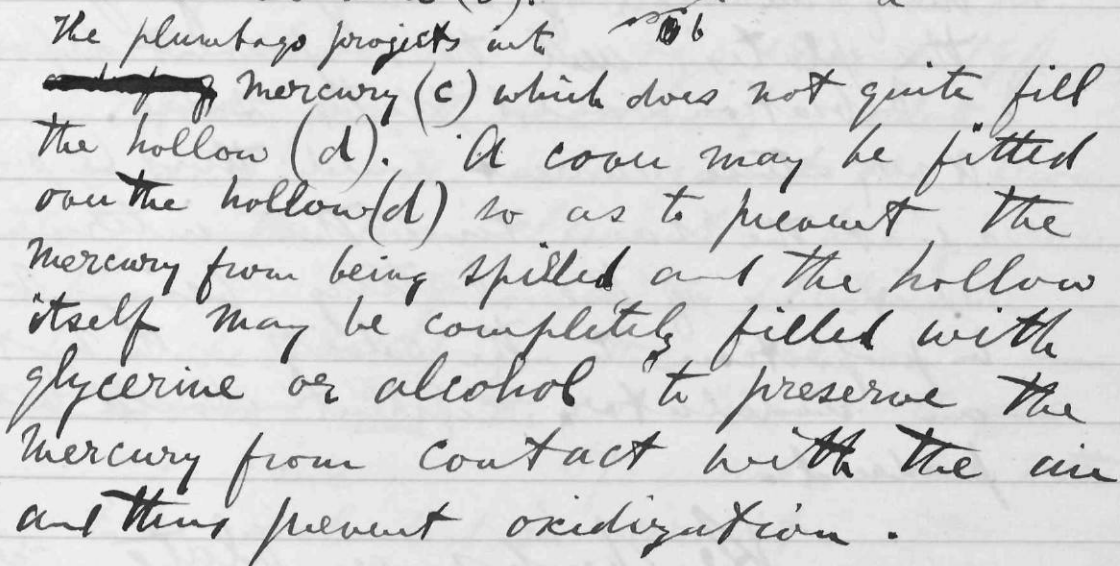 The plumbago projects into
mercury (c) which does not quite fill
the hollow (d). A cover may be fitted
over the hollow (d) so as to prevent the
mercury from being spilled and the hollow
itself may be completely filled with
glycerine or alcohol to preserve the
mercury from contact with the air
and thus prevent oxidization.